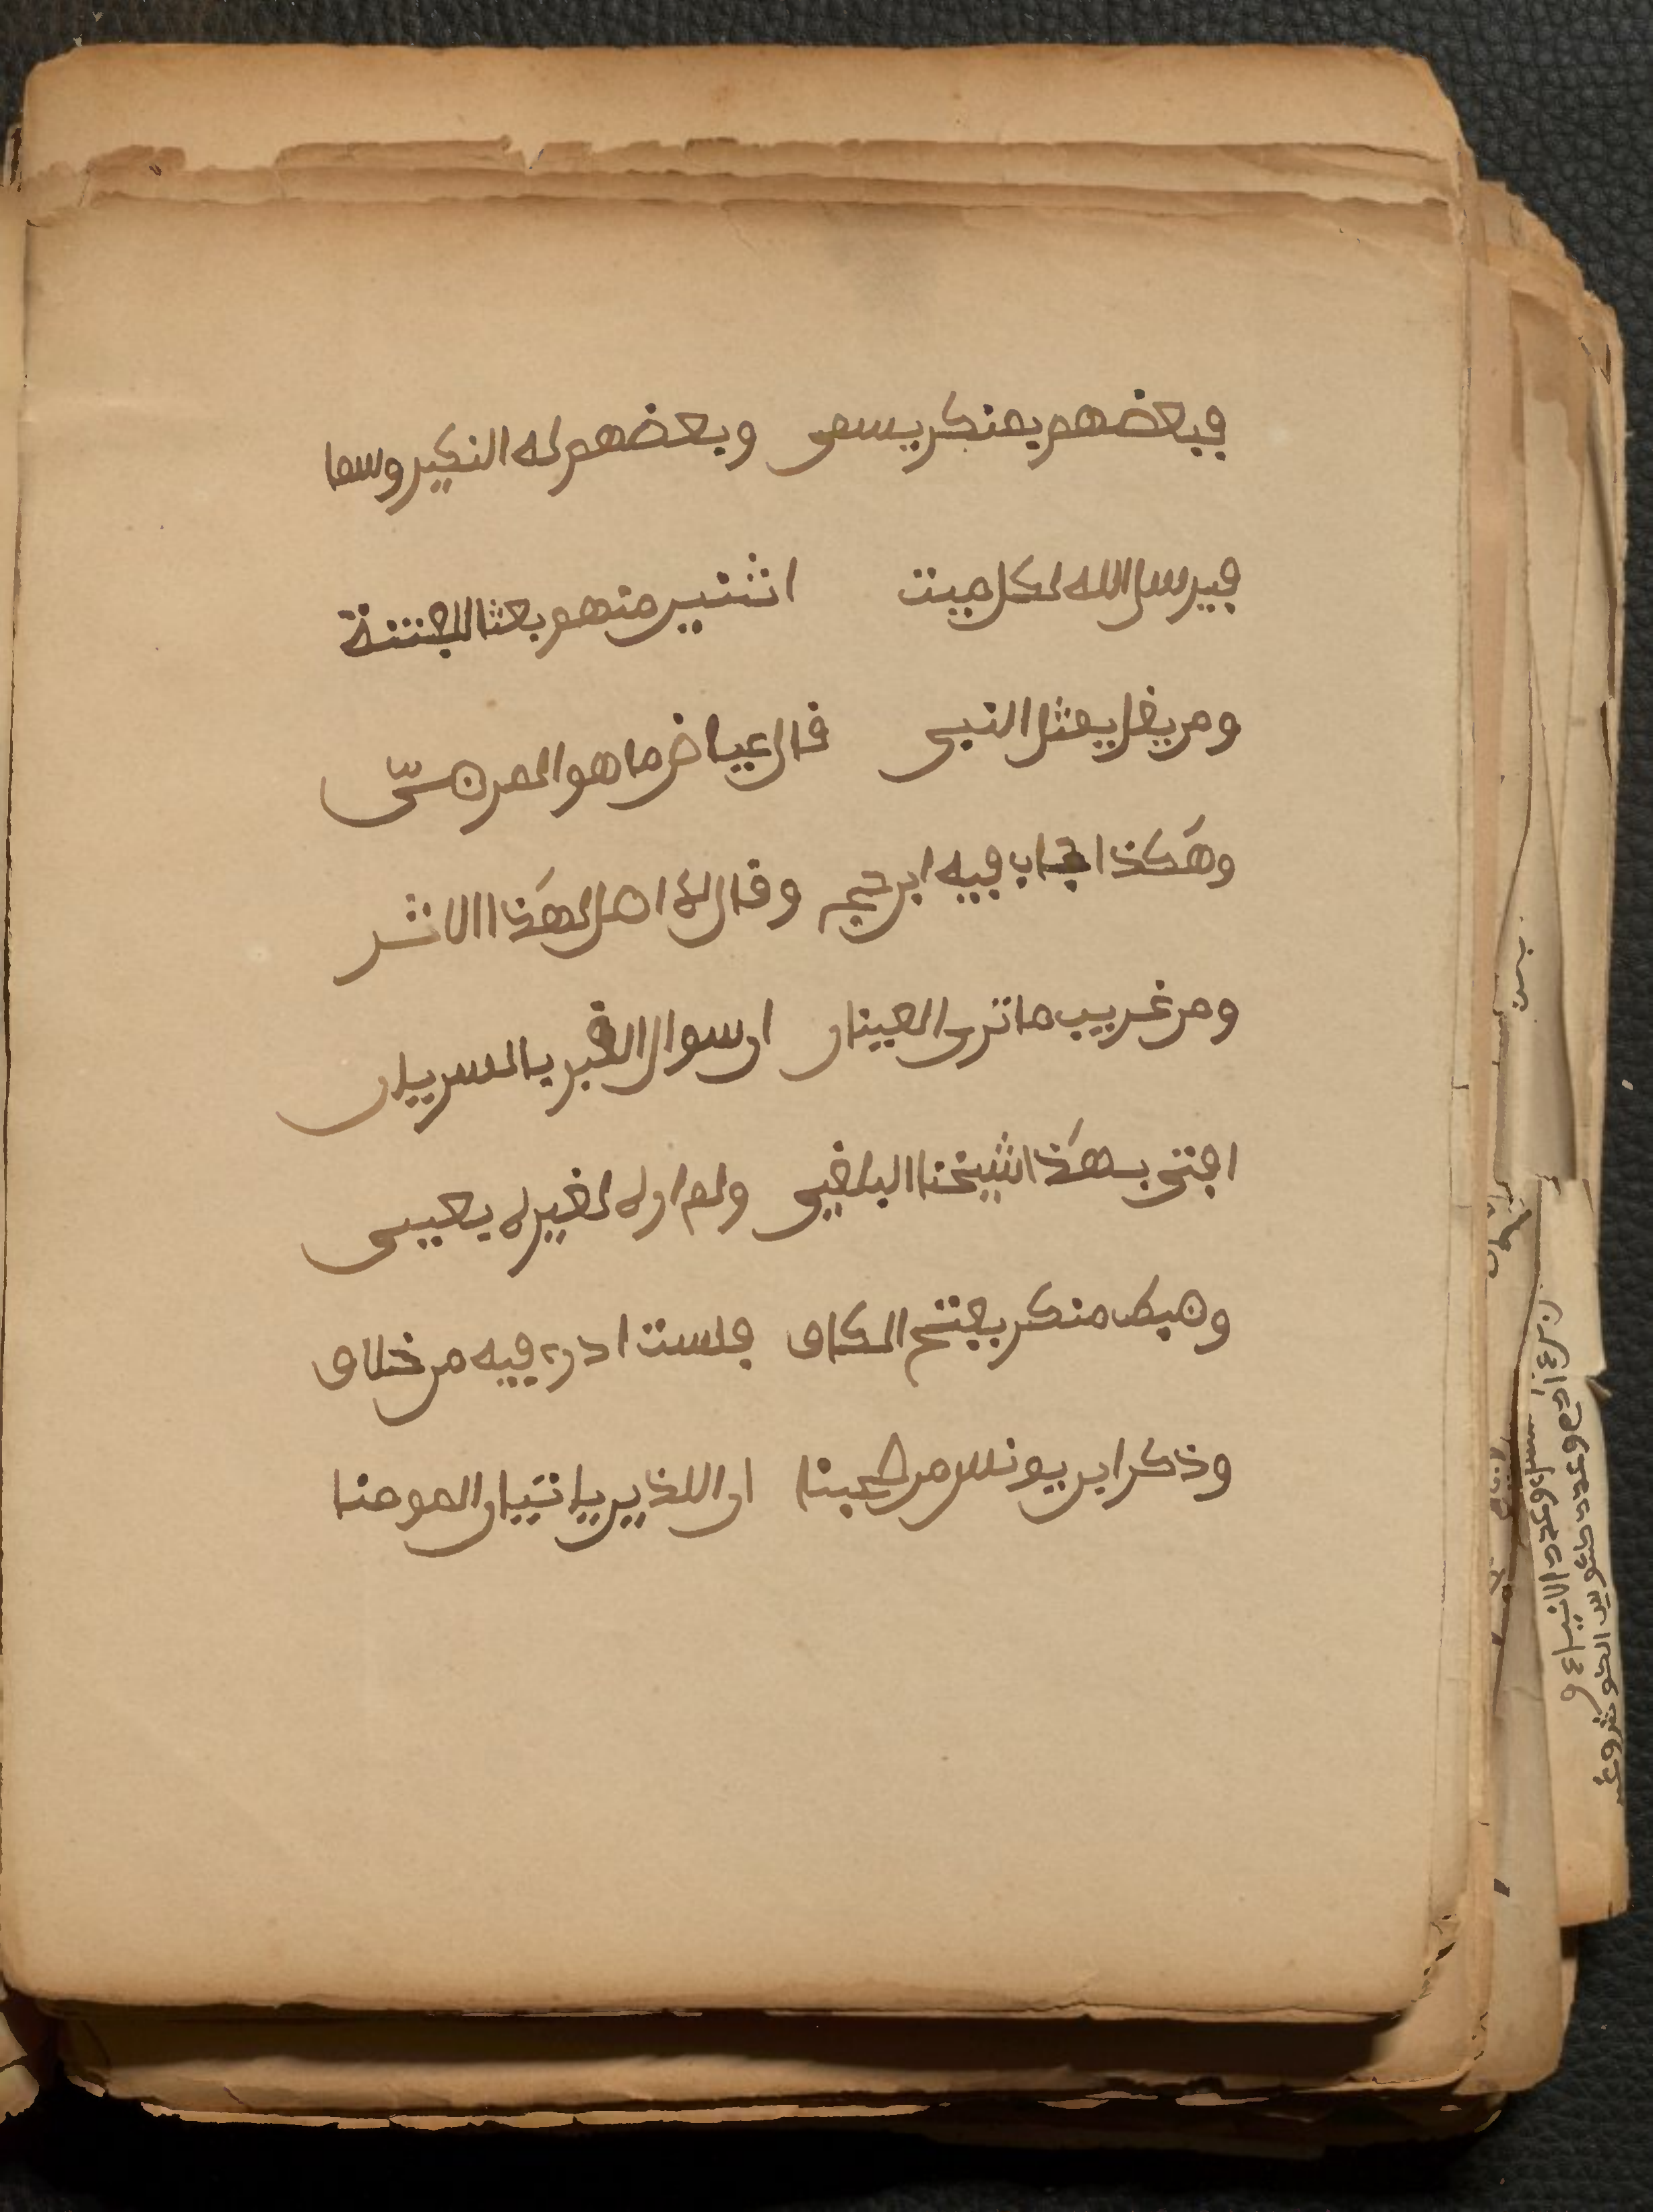 فبعضهم بمنكر يسمى وبعضهم له النكير وسما
فيرسل الله لكل ميت اثنين منهم بعثا للفتنة
ومن يقل يمثل النبي قال عياض ما هو المرضيّ
وهكذا اجاب فيه ابن حجر وقال لا اصل لهذا الاثر
ومن غريب ما ترى العينان ان سوال القبر بالسريان
افتى بهذا شيخنا البلقيني ولم اره لغيره بعيني
وضبط منكر بفتح الكاف فلست ادري فيه من خلاف
وذكر ابن يونس من صحبنا ان اللذين ياتيان المومنا